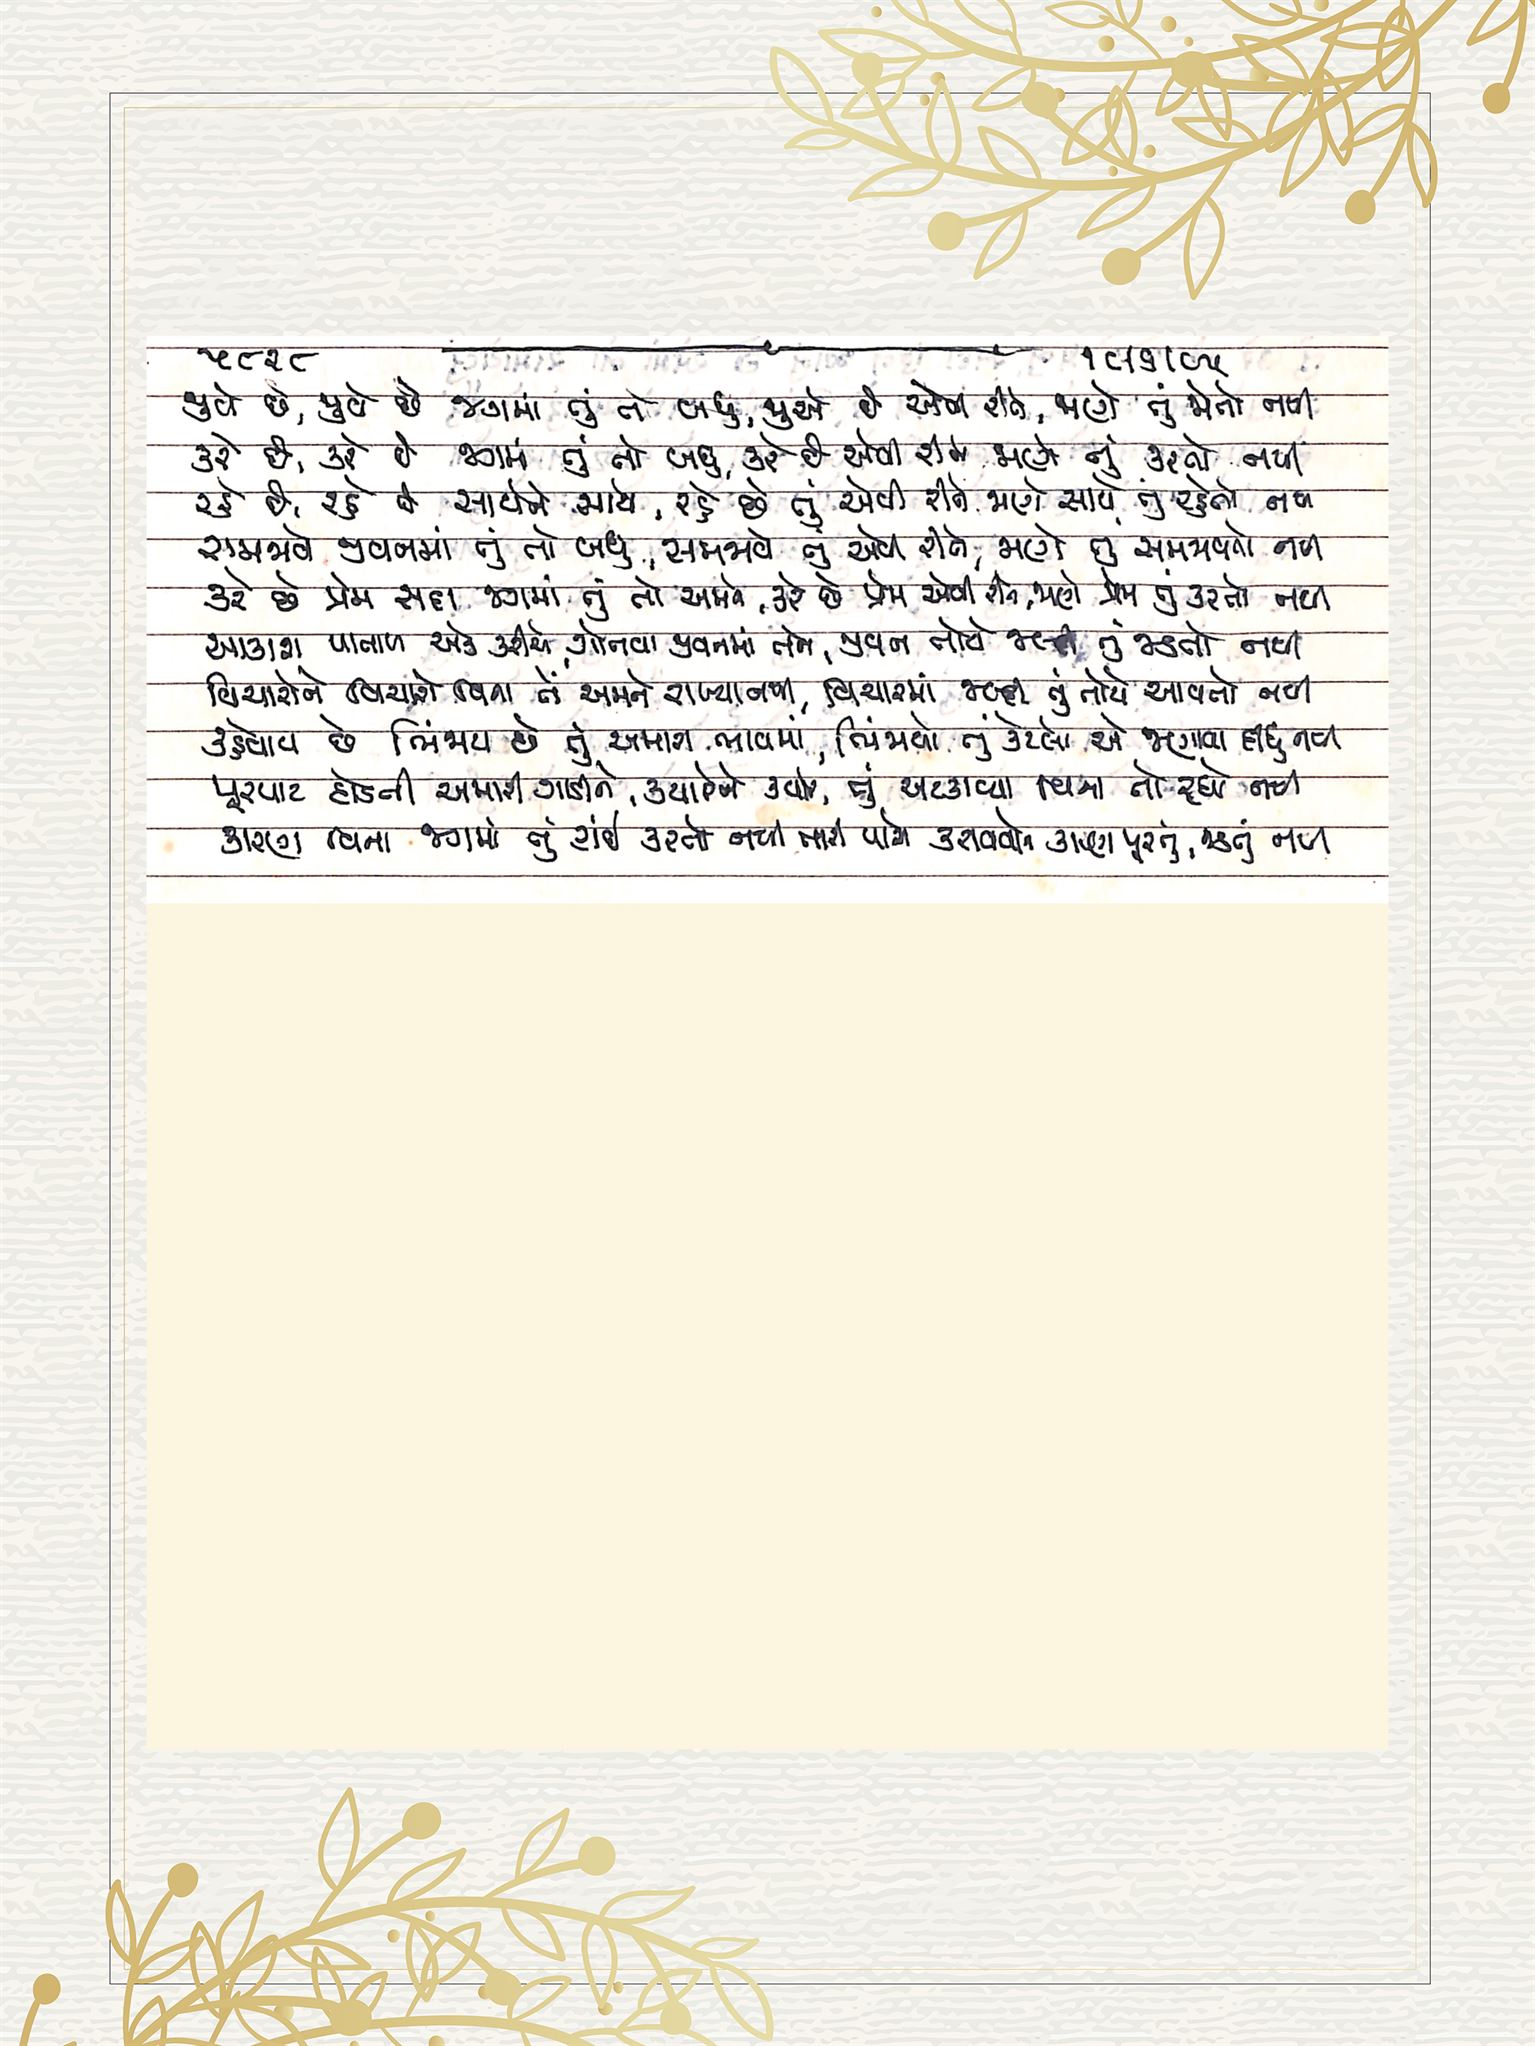 ૫૮૨૮ ૧૮।૬।૯૫
જુવે છે, જુવે છે જગમાં તું તો બધુ, જુએ છે એવી રીતે, જાણે તું જોતો નથી
કરે છે, કરે છે જગમાં તું તો બધુ, કરે છે એવી રીતે જાણે તું કરતો નથી
રહે છે, રહે છે સાથેને સાથે, રહે છે તું એવી રીતે જાણે સાથે તું રહેતો નથી
સમજાવે જીવનમાં તું તો બધુ, સમજાવે તું એવી રીતે, જાણે તું સમજાવતો નથી
કરે છે પ્રેમ સદા જગમાં તું તો અમને, કરે છે પ્રેમ એવી રીતે, જાણે પ્રેમ તું કરતો નથી
આકાશ પાતાળ એક કરીએ, ગોતવા જીવનમાં તને, જીવન તોયે જલ્દી તું જડતો નથી
વિચારોને વિચારો વિના તેં અમને રાખ્યા નથી, વિચારમાં જલ્દી તું તોયે આવતો નથી
કહેવાય છે ભિંજાય છે તું અમારા ભાવમાં, ભિંજાયો તું કેટલો એ જાણવા દીધુ નથી
પૂરપાટ દોડતી અમારી ગાડીને, ક્યારેને ક્યારે, તું અટકાવ્યા વિના તો રહ્યો નથી
કારણ વિના જગમાં તું કાંઈ કરતો નથી તારી પાસે કરાવવાનું કારણ પૂરતું, જડતું નથી